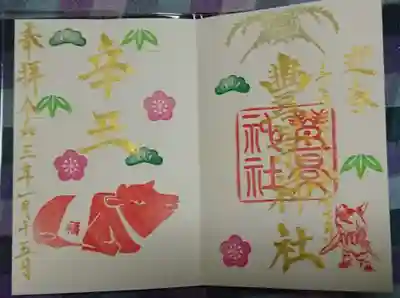 迎春
豊景神社
豊景神社
辛丑
奉拝 令和三年一月十五日
福